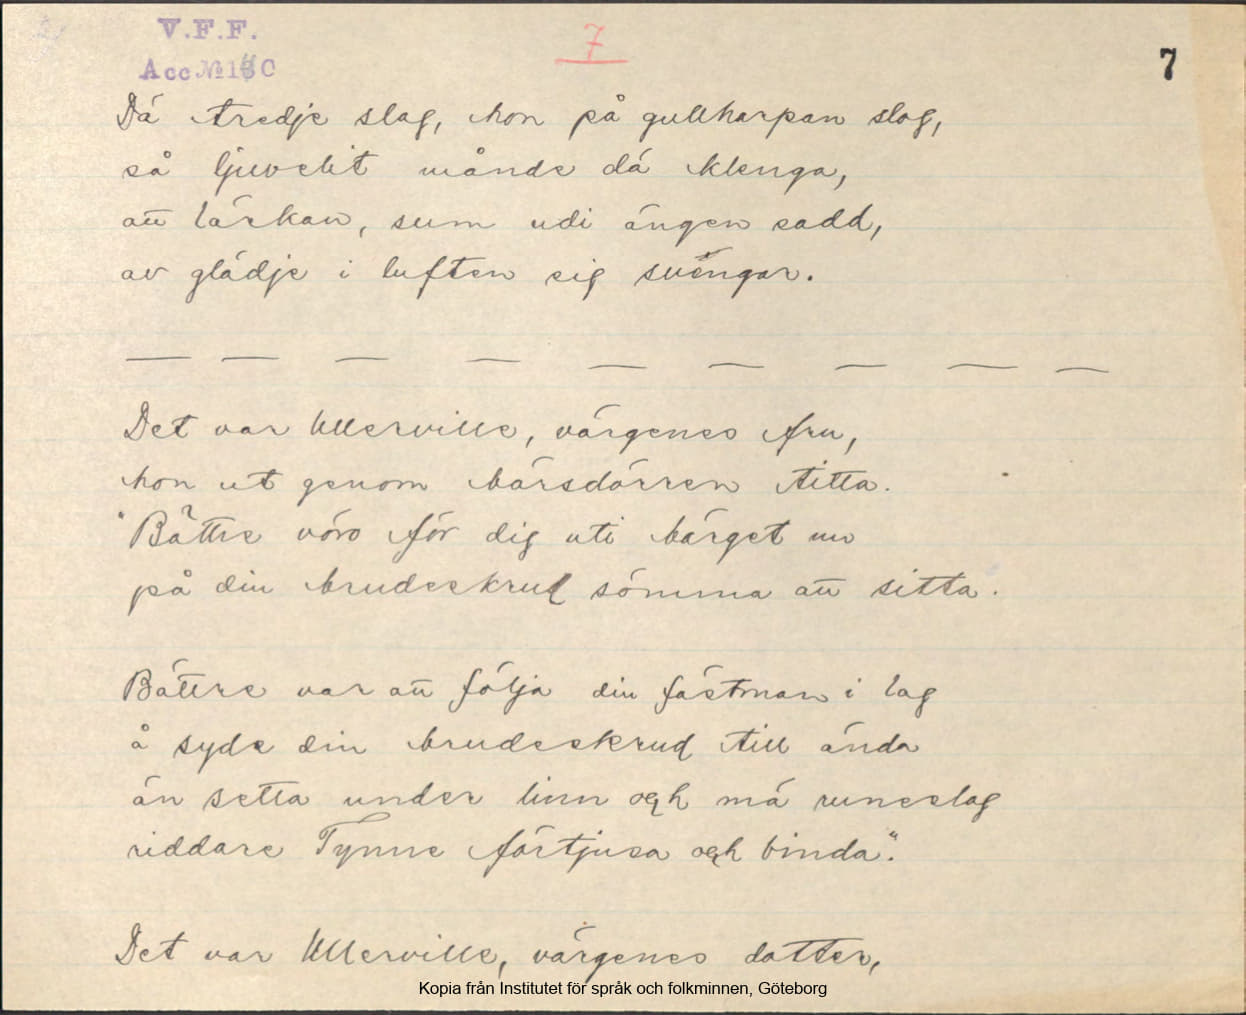 V.F.F.
7
7
Acc № 130
Dá tredje slag, hon på gullharpan slog,
så ljuvelit månde dá klenga,
att lärkan, sum udi ängen sadd,
av glädje i luften sig svéngar.
— — — — — — — — —
Det var Ullerville, värgenes fru,
hon ut genom bärsdörren titta.
"Bättre vóro för dig uti bärget nu
på din brudeskrud sömma att sitta.
Bättre var att följa din fästman i lag
å syde din brudeskrud till ända
än setta under linn och má runeslag
riddare Tynne förtjusa och binda."
Det var Ullerville, värgenes dotter,
Kopia från Institutet för språk och folkminnen, Göteborg